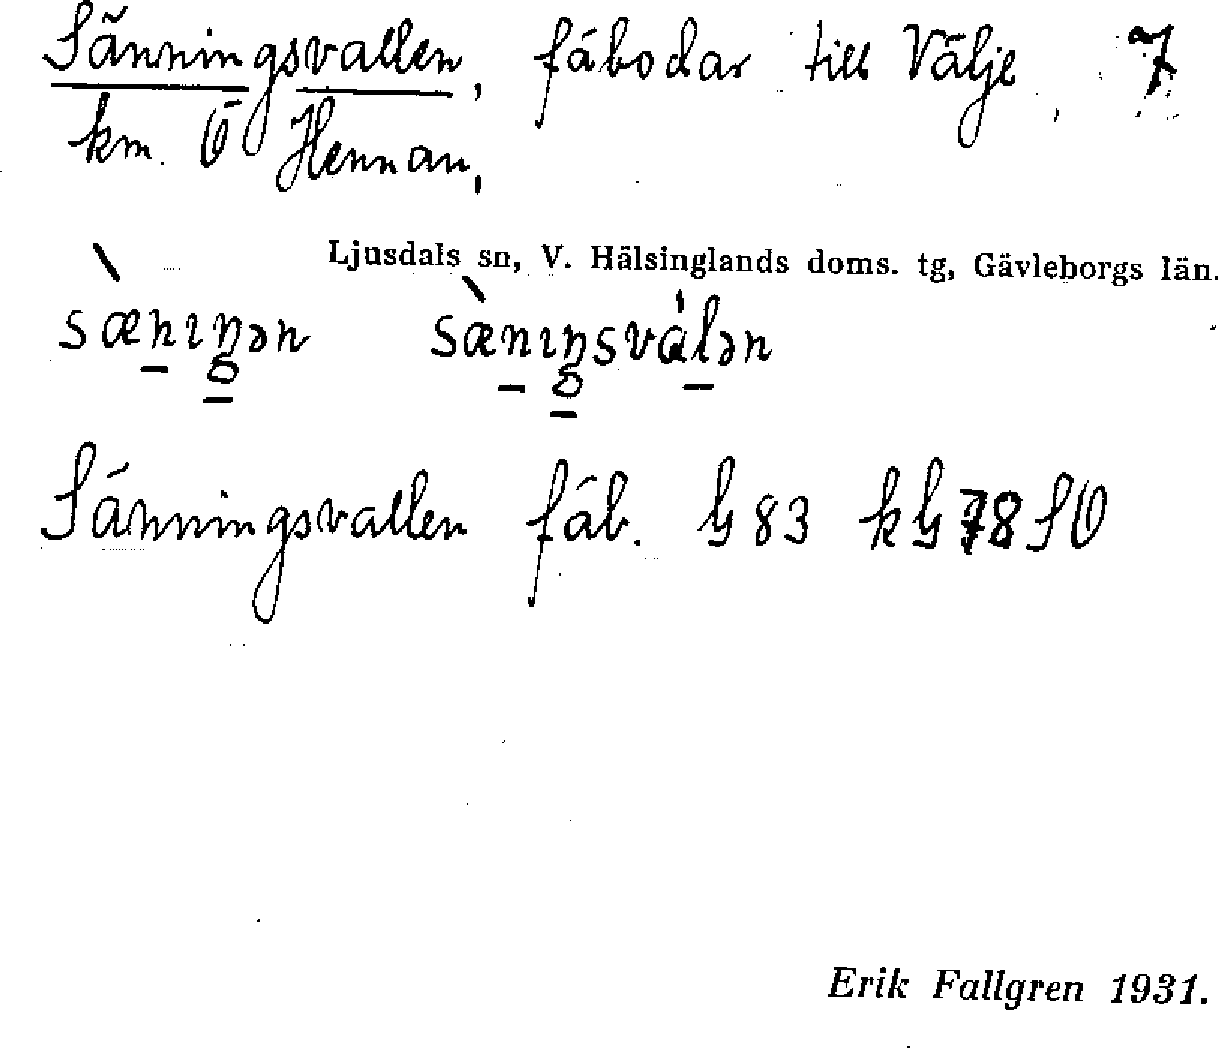 Sänningsvallen, fäbodar till Välje, 7
km. Ö Hennan,
Ljusdals sn, V. Hälsinglands doms. tg, Gävleborgs län.
sæniŋən sæniŋsvàlən
Sänningsvallen fäb. G 83 kG 78 SO
Erik Fallgren 1931.